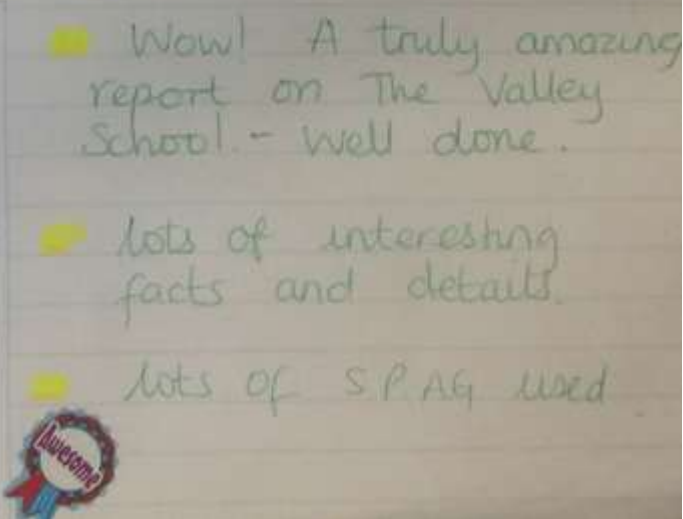 Wow! A truly amazing
report on The Valley
School - Well done.
lots of interesting
facts and details.
lots of SPAG used
Awesome